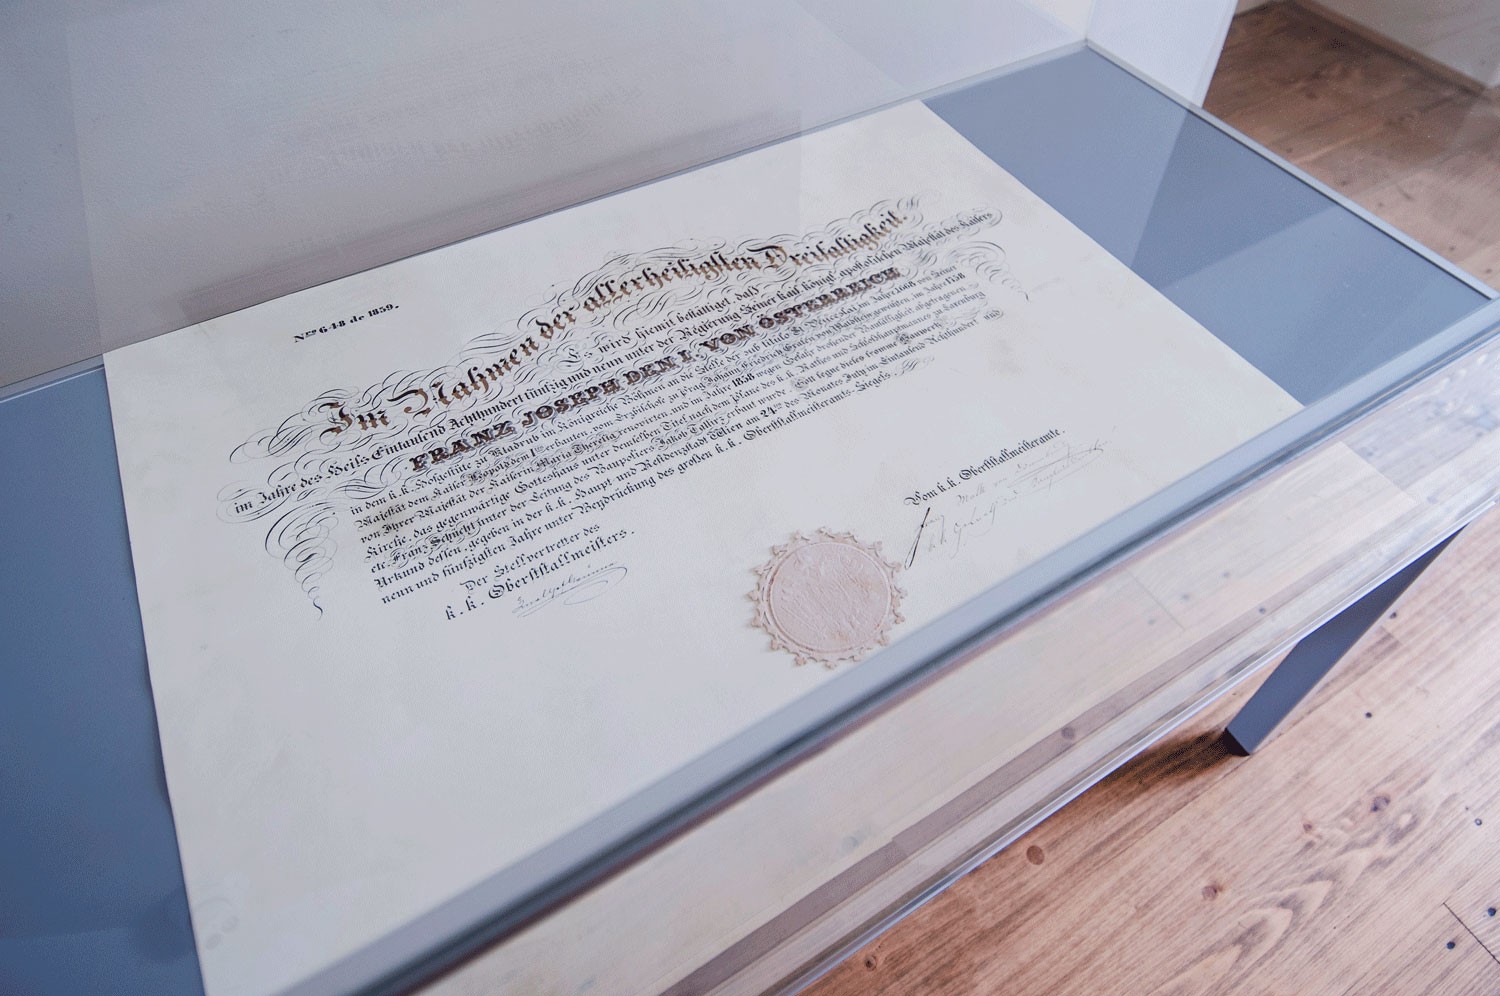 Nrus 648 de 1859.
Im Nahmen der allerheiligsten Dreifaltigkeit.
Es wird hiemit bestättiget, daß
im Jahre des Heils Eintausend Achthundert fünfzig und neun unter der Regierung Seiner kais. königl. apostolischen Majestät des Kaisers
FRANZ JOSEPH DEN I. VON ÖSTERREICH
in dem k. k. Hofgestüte zu Kladrub im Königreiche Böhmen an die Stelle, der sub titulo St. im Jahre 1668 von Seiner
Majestät dem Kaiser Leopold dem Iten erbauten, vom Erzbischofe zu Prag Johann Friedrich Grafen von Waldstein geweihten, im Jahre
von Ihrer Majestät der Kaiserin Maria Theresia renovirten und im Jahre 1858 wegen Gefahr drohender Baufälligkeit abgetragenen
Kirche, das gegenwärtige Gotteshaus unter demselben Titel nach dem Plane des k. k. Rathes und Schloßhauptmannes zu Laxenburg
etc. Franz unter der Leitung des Baupoliers Jakob erbaut wurde. Gott segne dieses fromme Bauwerk.
Urkund dessen, gegeben in der k. k. Haupt- und Residenzstadt Wien am 24ten des Monates July im Eintausend Achthundert und
neun und fünfzigsten Jahre unter Beydrückung des großen k. k. Oberststallmeisteramts-Siegels.
Der Stellvertreter des
k. k. Oberststallmeisters.
Vom k. k. Oberststallmeisteramte.